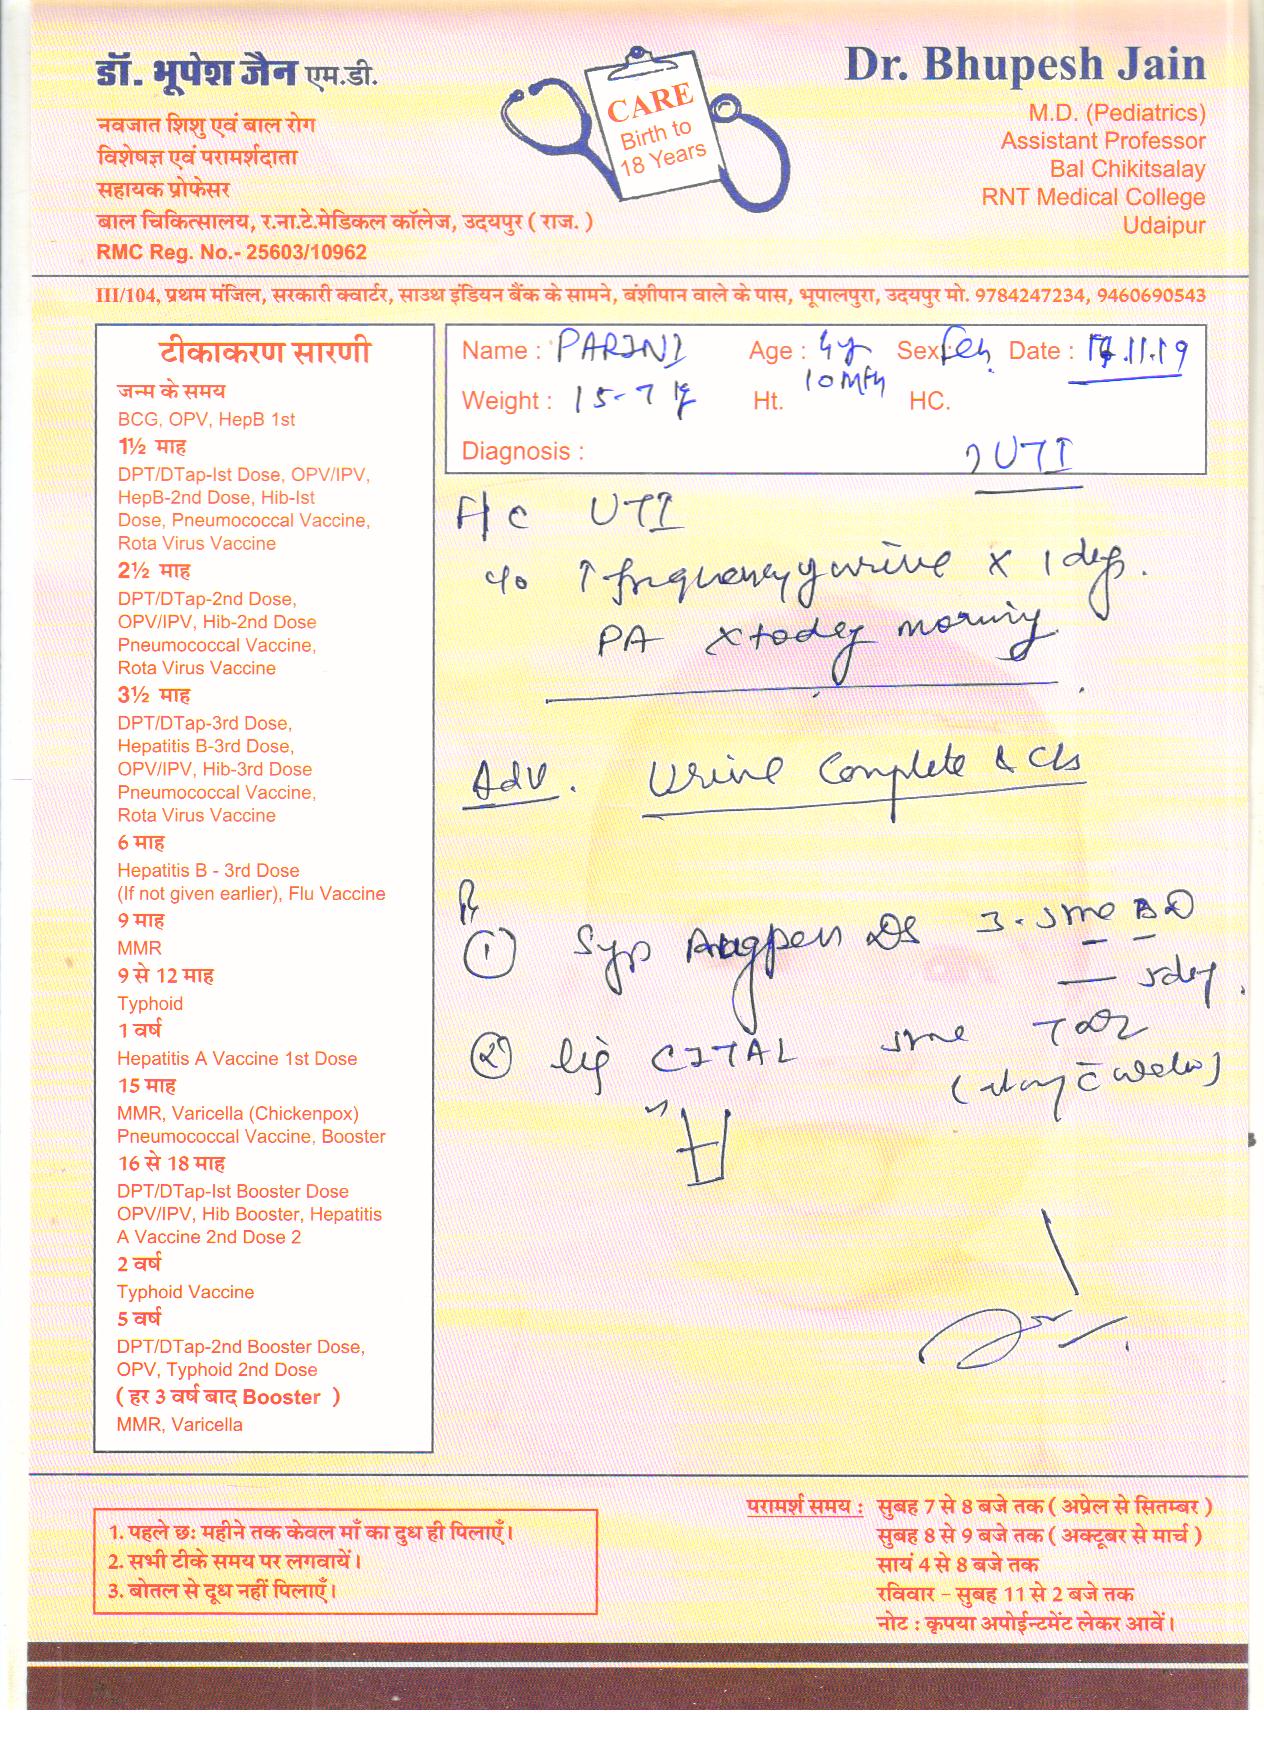 डॉ. भूपेश जैन एम.डी.
नवजात शिशु एवं बाल रोग
विशेषज्ञ एवं परामर्शदाता
सहायक प्रोफेसर
बाल चिकित्सालय, र.ना.टे.मेडिकल कॉलेज, उदयपुर ( राज. )
RMC Reg. No.- 25603/10962
CARE
Birth to
18 Years
Dr. Bhupesh Jain
M.D. (Pediatrics)
Assistant Professor
Bal Chikitsalay
RNT Medical College
Udaipur
III/104, प्रथम मंजिल, सरकारी क्वार्टर, साउथ इंडियन बैंक के सामने, बंशीपान वाले के पास, भूपालपुरा, उदयपुर मो. 9784247234, 9460690543
टीकाकरण सारणी
जन्म के समय
BCG, OPV, HepB 1st
1½ माह
DPT/DTap-Ist Dose, OPV/IPV,
HepB-2nd Dose, Hib-Ist
Dose, Pneumococcal Vaccine,
Rota Virus Vaccine
2½ माह
DPT/DTap-2nd Dose,
OPV/IPV, Hib-2nd Dose
Pneumococcal Vaccine,
Rota Virus Vaccine
3½ माह
DPT/DTap-3rd Dose,
Hepatitis B-3rd Dose,
OPV/IPV, Hib-3rd Dose
Pneumococcal Vaccine,
Rota Virus Vaccine
6 माह
Hepatitis B - 3rd Dose
(If not given earlier), Flu Vaccine
9 माह
MMR
9 से 12 माह
Typhoid
1 वर्ष
Hepatitis A Vaccine 1st Dose
15 माह
MMR, Varicella (Chickenpox)
Pneumococcal Vaccine, Booster
16 से 18 माह
DPT/DTap-Ist Booster Dose
OPV/IPV, Hib Booster, Hepatitis
A Vaccine 2nd Dose 2
2 वर्ष
Typhoid Vaccine
5 वर्ष
DPT/DTap-2nd Booster Dose,
OPV, Typhoid 2nd Dose
( हर 3 वर्ष बाद Booster )
MMR, Varicella
Name : PARINI Age : 4y Sex: Fem. Date : .11.19
10 Mth
Weight : 15.7 kg Ht. HC.
Diagnosis : ? UTI
UTI
c/o ↑ frequency of urine x 1 day.
PA x today morning.
Adv. Urine Complete & C/s
Rx
① Syp Augpen DS 3.5ml BD
— 5day.
② liq CITAL 5ml TDS
परामर्श समय : सुबह 7 से 8 बजे तक ( अप्रेल से सितम्बर )
सुबह 8 से 9 बजे तक ( अक्टूबर से मार्च )
सायं 4 से 8 बजे तक
रविवार – सुबह 11 से 2 बजे तक
नोट : कृपया अपोईन्टमेंट लेकर आवें।
1. पहले छः महीने तक केवल माँ का दूध ही पिलाएँ।
2. सभी टीके समय पर लगवायें।
3. बोतल से दूध नहीं पिलाएँ।